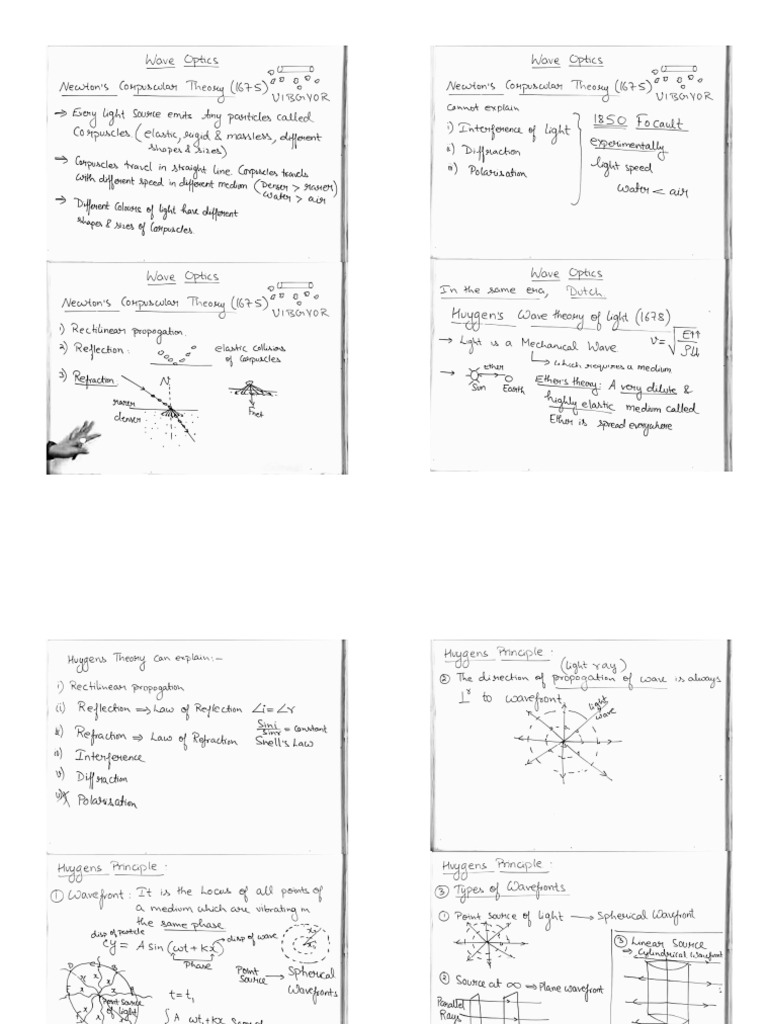 Wave Optics
Newton's Corpuscular Theory (1675)
VIBGYOR
→ Every light source emits tiny particles called
Corpuscles (elastic, rigid & massless, different
shapes & sizes)
→ Corpuscles travel in straight line. Corpuscles travels
with different speed in different medium (Denser > rarer)
Water > air
→ Different Colours of light have different
shapes & sizes of Corpuscles.
Wave Optics
Newton's Corpuscular Theory (1675)
VIBGYOR
1) Rectilinear propogation.
2) Reflection:
elastic collisions
of corpuscles
3) Refraction
N
rarer
denser
Fnet
Wave Optics
Newton's Corpuscular Theory (1675)
VIBGYOR
cannot explain
i) Interference of light
ii) Diffraction
iii) Polarisation
1850 Focault
experimentally
light speed
Water < air
Wave Optics
In the same era, Dutch.
Huygen's Wave theory of light (1678)
→ Light is a Mechanical Wave
v = √E↑↑/ρ↓↓
↳ which requires a medium
→ Sun Ether Earth
Ether's theory: A very dilute &
highly elastic medium called
Ether is spread everywhere
Huygens Theory can explain:-
i) Rectilinear propogation
(ii) Reflection ⇒ Law of Reflection ∠i = ∠r
Refraction ⇒ Law of Refraction Sini/Sinr = constant
Snell's Law
Interference
v) Diffraction
Polarisation
Huygens Principle:
① Wavefront: It is the Locus of all points of
a medium which are vibrating in
the same phase
disp of particle
y = A sin (wt + kx) disp of wave
Phase
Point Source → Spherical
Wavefronts
Point source
of light
t = t₁
A wt + kx
Huygens Principle:
(light ray)
② The direction of propogation of wave is always
⊥ʳ to wavefront
light
wave
Huygens Principle:
③ Types of Wavefronts
① Point Source of light → Spherical Wavefront
② Source at ∞ ⇒ Plane wavefront
Parallel
Rays
③ Linear Source
→ Cylindrical Wavefront